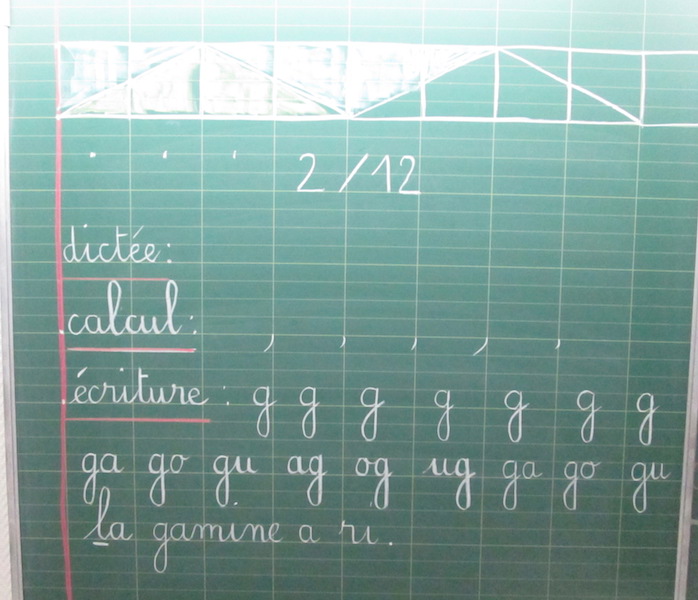 2/12
dictée:
calcul: , , , , ,
écriture : g g g g g g g
ga go gu ag og ug ga go gu
la gamine a ri.